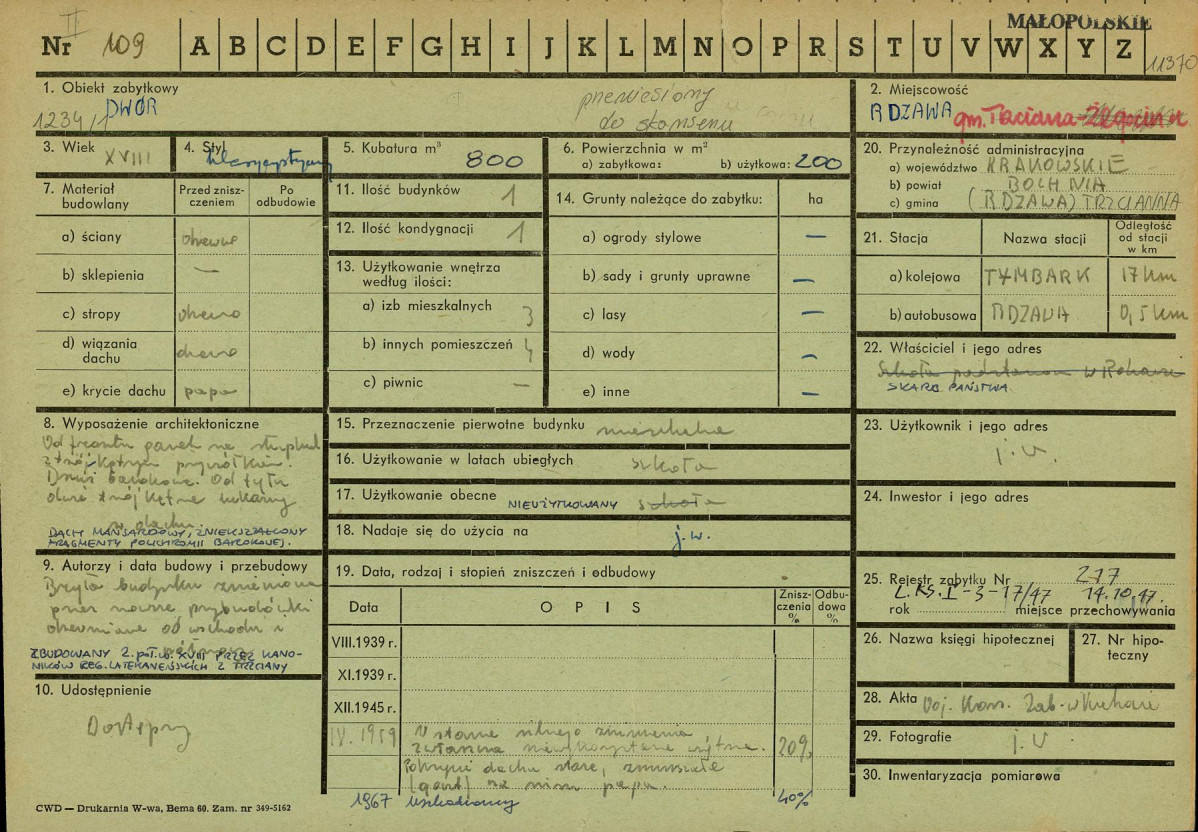 MAŁOPOLSKIE
II
Nr 109 A B C D E F G H I J K L M N O P R S T U V W X Y Z
11370
1. Obiekt zabytkowy
DWÓR
1234/1
przeniesiony
do skansenu
2. Miejscowość
RDZAWA gm. Trzciana
3. Wiek XVIII
4. Styl
5. Kubatura m³ 800
6. Powierzchnia w m²
a) zabytkowa: b) użytkowa: 200
20. Przynależność administracyjna
a) województwo KRAKOWSKIE
b) powiat BOCHNIA
c) gmina (RDZAWA) TRZCIANNA
7. Materiał budowlany
Przed zniszczeniem
Po odbudowie
a) ściany drewno
b) sklepienia —
c) stropy drewno
d) wiązania dachu drewno
e) krycie dachu papa
11. Ilość budynków 1
12. Ilość kondygnacji 1
13. Użytkowanie wnętrza według ilości:
a) izb mieszkalnych 3
b) innych pomieszczeń 4
c) piwnic —
14. Grunty należące do zabytku: ha
a) ogrody stylowe —
b) sady i grunty uprawne —
c) lasy —
d) wody —
e) inne —
21. Stacja Nazwa stacji Odległość od stacji w km
a) kolejowa TYMBARK 17 km
b) autobusowa RDZAWA 0,5 km
22. Właściciel i jego adres
Szkoła podstawowa w
SKARB PAŃSTWA
8. Wyposażenie architektoniczne
Od frontu ganek na słupkach
z trójkątnym przyczółkiem.
Drzwi barokowe. Od tyłu
duże trójkątne lukarny
w dachu.
DACH MANSARDOWY, ZNIEKSZTAŁCONY
FRAGMENTY POLICHROMII BAROKOWEJ.
15. Przeznaczenie pierwotne budynku mieszkalne
16. Użytkowanie w latach ubiegłych szkoła
17. Użytkowanie obecne NIEUŻYTKOWANY szkoła
18. Nadaje się do użycia na j.w.
23. Użytkownik i jego adres
j.w.
24. Inwestor i jego adres
9. Autorzy i data budowy i przebudowy
Bryła budynku zmieniona
przez nowsze przybudówki
drewniane od wschodu i
ZBUDOWANY 2. poł. w. XVIII PRZEZ KANONIKÓW REG. LATERANEŃSKICH Z TRZCIANY
10. Udostępnienie
Dostępny
19. Data, rodzaj i stopień zniszczeń i odbudowy
Data OPIS Zniszczenia % Odbudowa %
VIII.1939 r.
XI.1939 r.
XII.1945 r.
IV. 1959 W stanie silnego zniszczenia
zwłaszcza 20%
Pokrycie dachu stare, zmurszałe
(gont) na nim papa.
1967 uszkodzony 40%
25. Rejestr zabytku Nr 277
L. KS. I-3-17/47 14.10.47.
rok miejsce przechowywania
26. Nazwa księgi hipotecznej
27. Nr hipoteczny
28. Akta Woj. Kons. Zab. w Krakowie
29. Fotografie j.w
30. Inwentaryzacja pomiarowa
CWD — Drukarnia W-wa, Bema 60. Zam. nr 349-5162